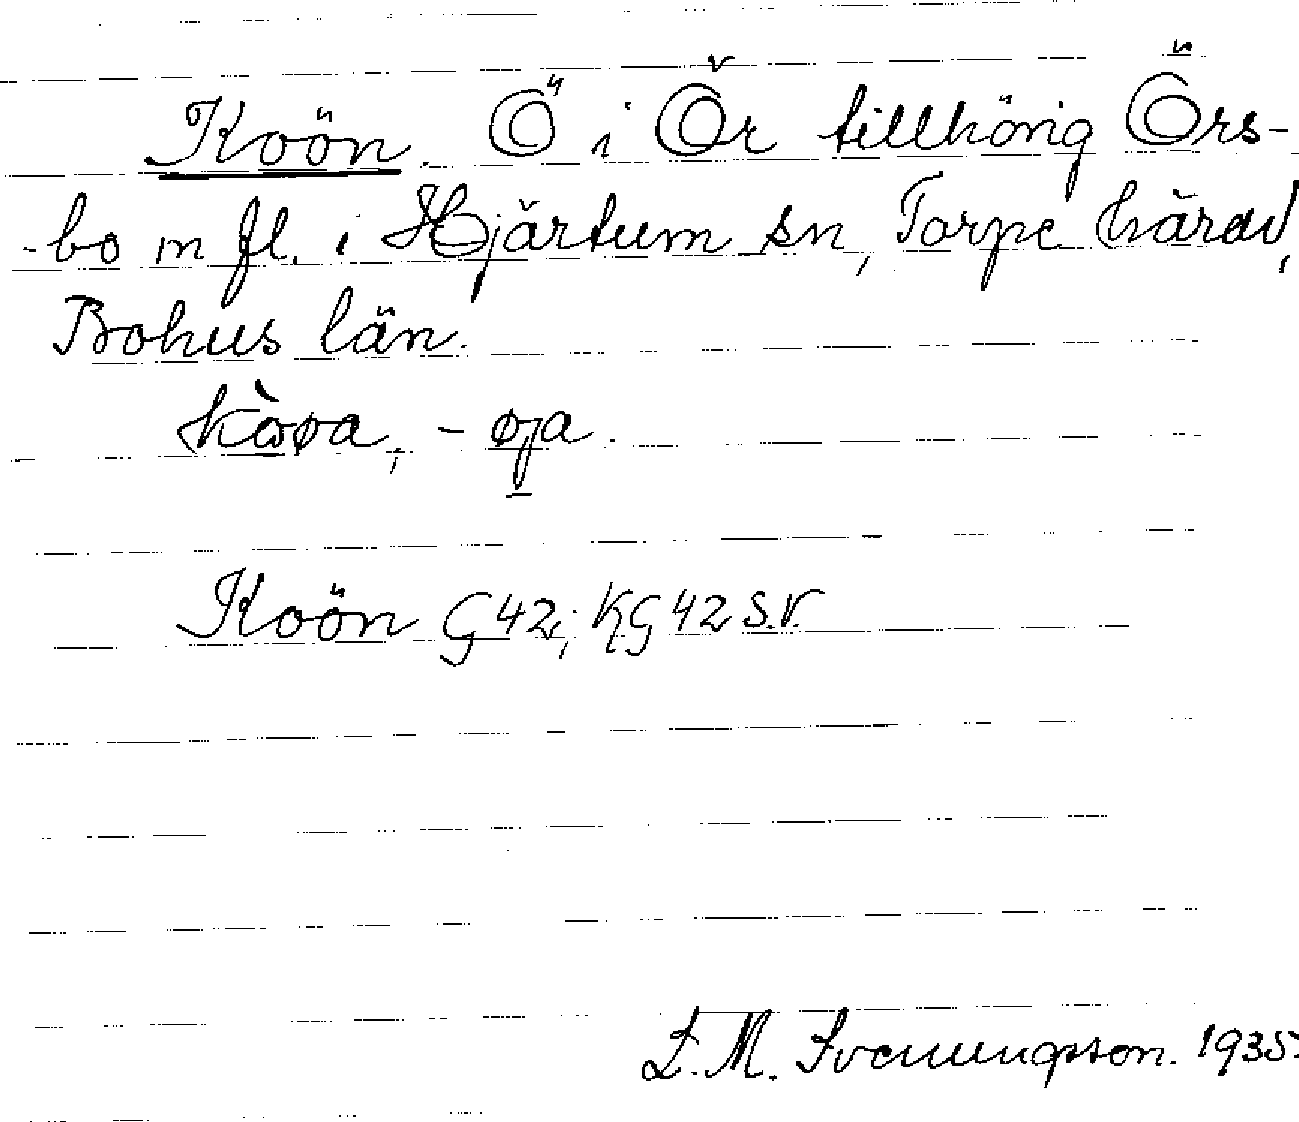 Koön. Ö i Ör tillhörig Örs-
-bo m fl. i Hjärtum sn, Torpe härad,
Bohus län.
kòøa, -øja.
Koön G42; KG42 S.V.
L. M. Svenungsson. 1935.